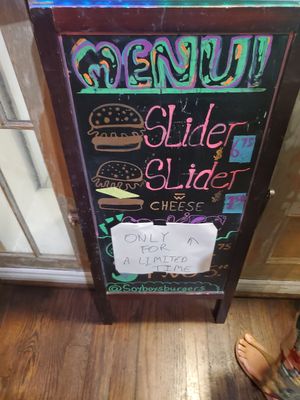 MENU!
SLider
6.75
SLider
W
CHEESE
ONLY
FOR
A LIMITED
TIME
@Soyboysburgers